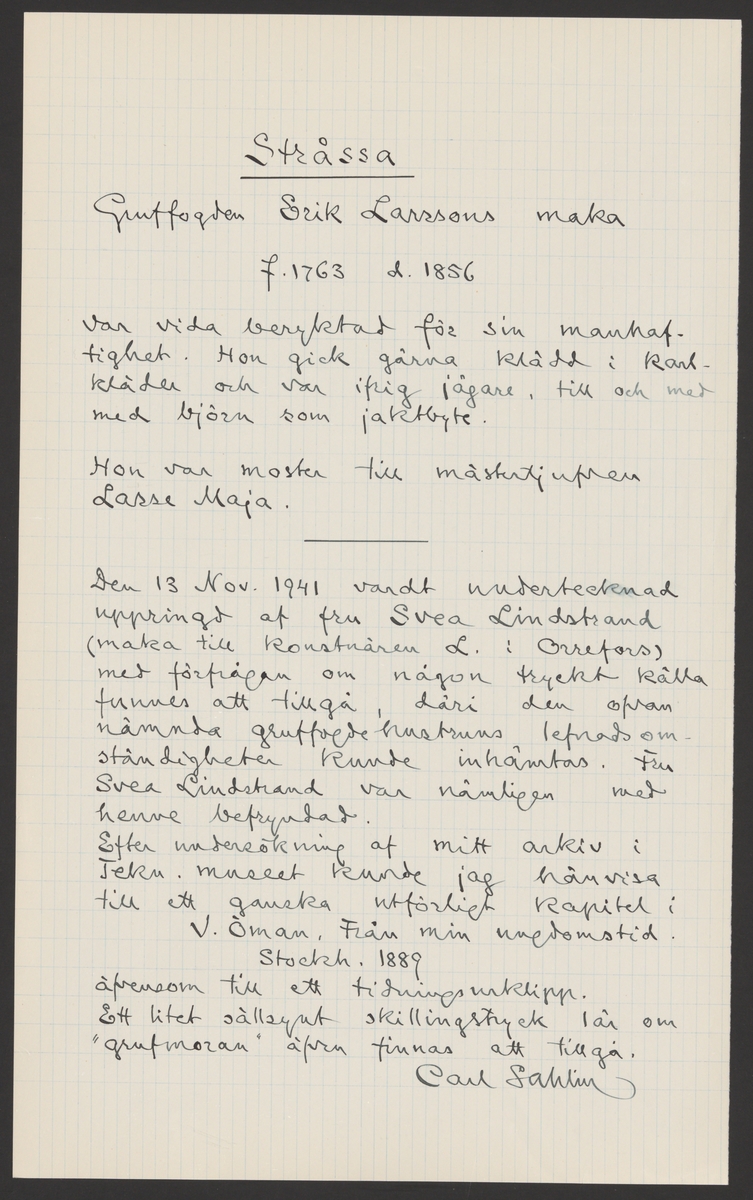 Stråssa
Gruffogden Erik Larssons maka
f. 1763 d. 1856
var vida beryktad för sin manhaf-
tighet. Hon gick gärna klädd i karl-
kläder och var ifrig jägare, till och med
med björn som jaktbyte.
Hon var moster till mästertjufven
Lasse Maja.
Den 13 Nov. 1941 vardt undertecknad
uppringd af fru Svea Lindstrand
(maka till konstnären L. i Orrefors)
med förfrågan om någon tryckt källa
funnes att tillgå, däri den ofvan
nämnda gruffogdehustruns lefnadsom-
ständigheter kunde inhämtas. Fru
Svea Lindstrand var nämligen med
henne befryndad.
Efter undersökning af mitt arkiv i
Tekn. museet kunde jag hänvisa
till ett ganska utförligt kapitel i
V. Öman, Från min ungdomstid.
Stockh. 1889
äfvensom till ett tidningsurklipp.
Ett litet sällsynt skillingstryck lär om
"grufmoran" äfven finnas att tillgå.
Carl Sahlin